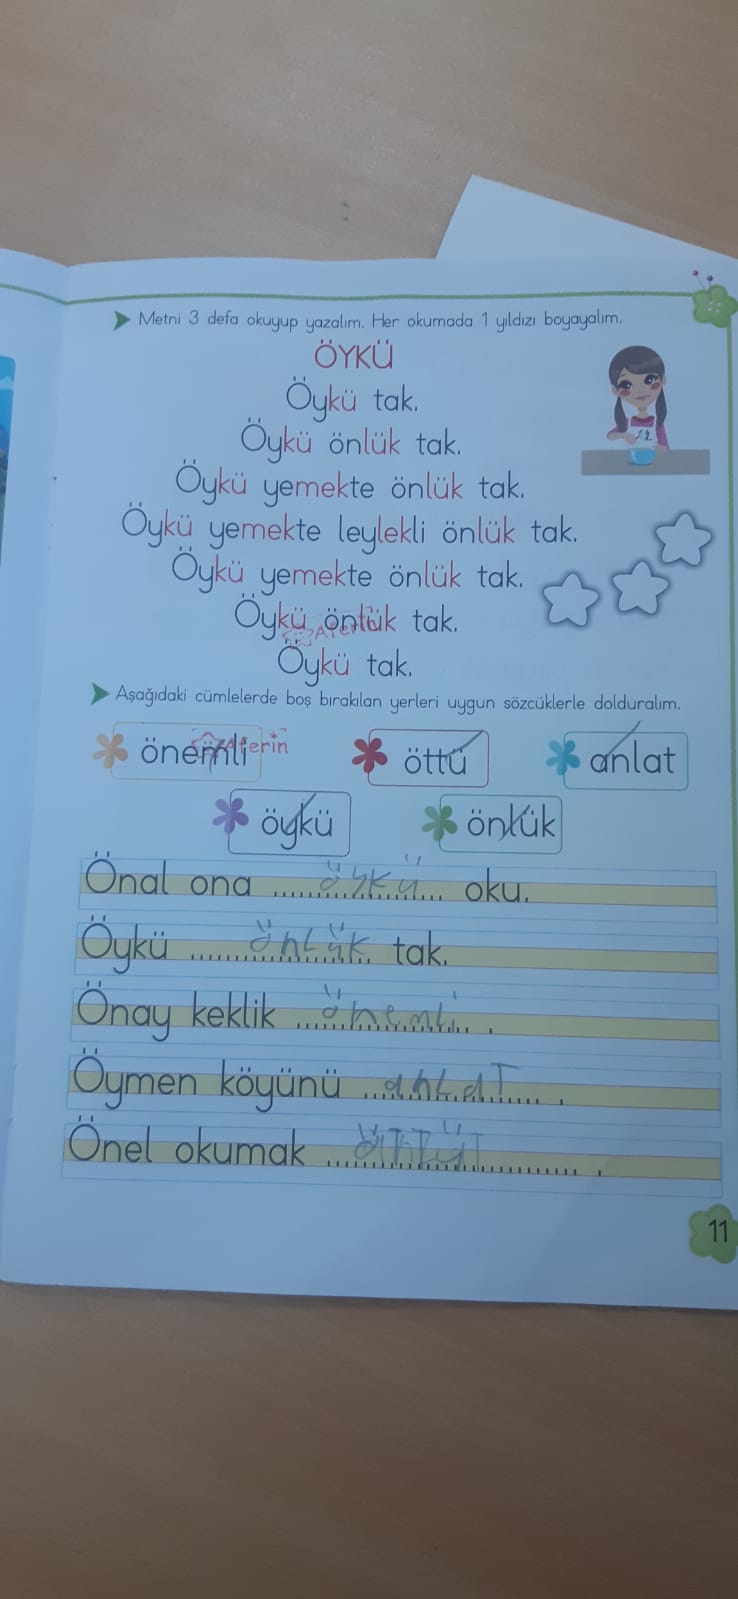 Metni 3 defa okuyup yazalım. Her okumada 1 yıldızı boyayalım.
ÖYKÜ
Öykü tak.
Öykü önlük tak.
Öykü yemekte önlük tak.
Öykü yemekte leylekli önlük tak.
Öykü yemekte önlük tak.
Öykü önlük tak.
Aferin
Öykü tak.
Aşağıdaki cümlelerde boş bırakılan yerleri uygun sözcüklerle dolduralım.
önemli Aferin öttü anlat
öykü önlük
Önal ona öykü oku.
Öykü önlük tak.
Önay keklik önemli.
Öymen köyünü anlat.
Önel okumak ............ .
11